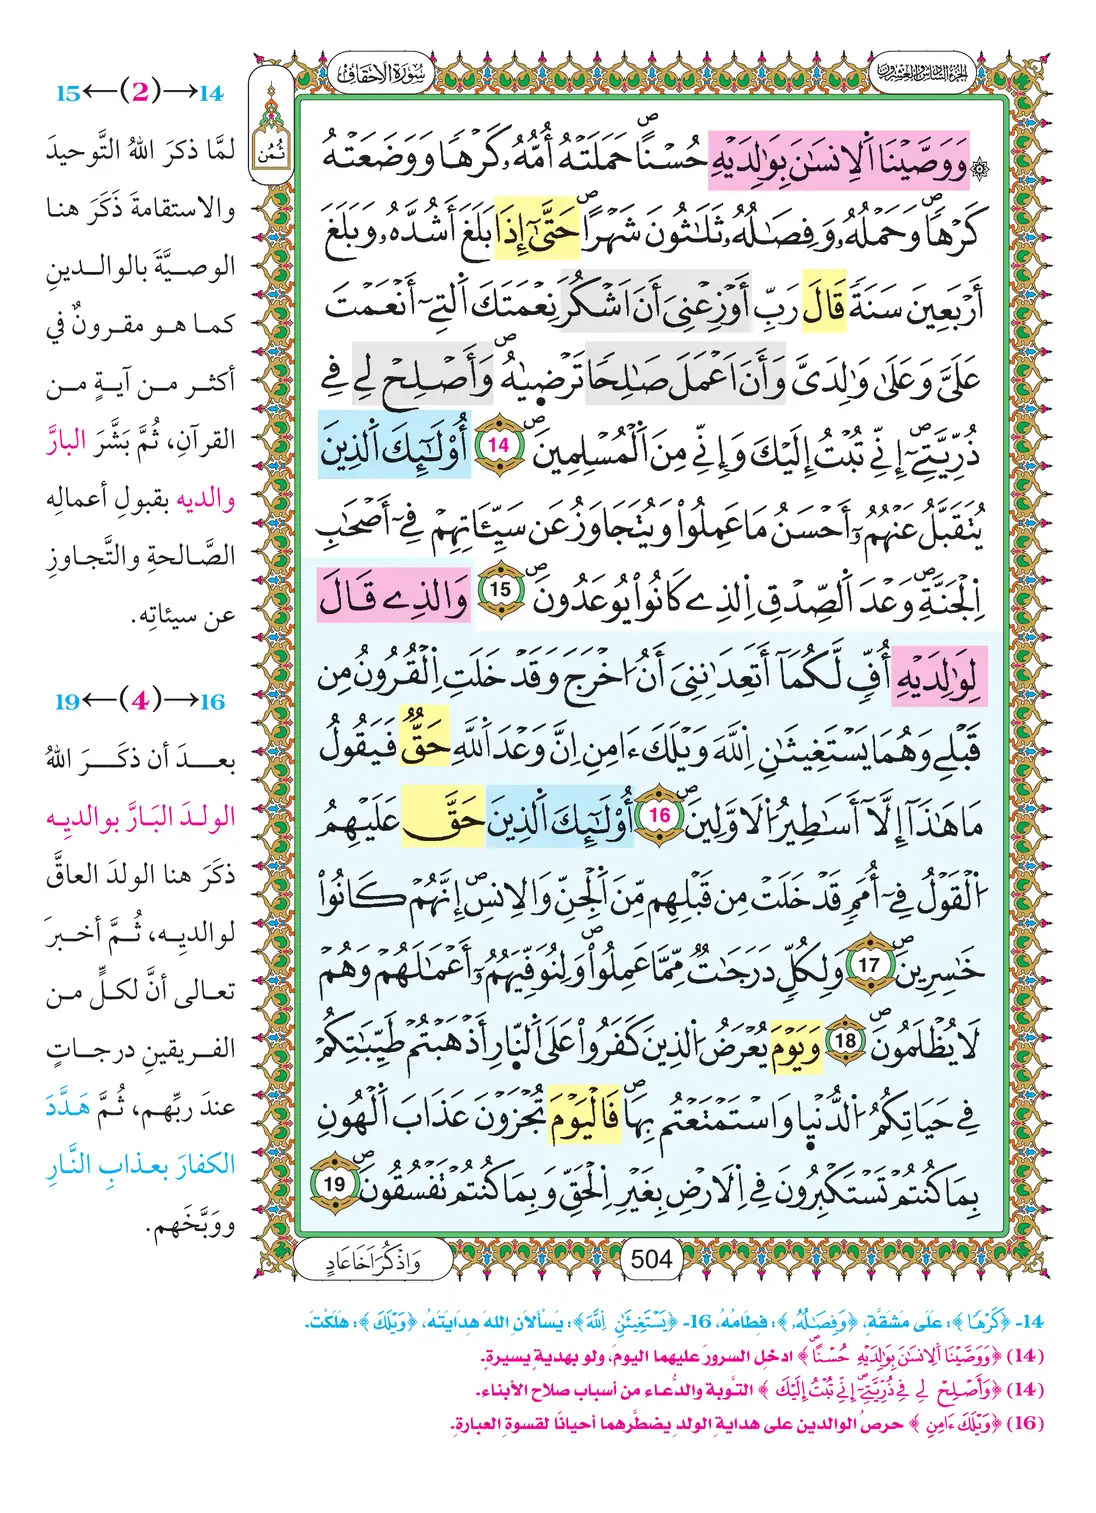 الجزء السادس والعشرون
سورة الأحقاف
ثمن
۞ وَوَصَّيْنَا اَ۬لِانسَٰنَ بِوَٰلِدَيْهِ حُسْناًۖ حَمَلَتْهُ أُمُّهُۥ كَرْهاٗ وَوَضَعَتْهُ
كَرْهاٗۖ وَحَمْلُهُۥ وَفِصَٰلُهُۥ ثَلَٰثُونَ شَهْراًۖ حَتَّىٰٓ إِذَا بَلَغَ أَشُدَّهُۥ وَبَلَغَ
أَرْبَعِينَ سَنَةٗ قَالَ رَبِّ أَوْزِعْنِي أَنَ اَشْكُرَ نِعْمَتَكَ اَ۬لتِےٓ أَنْعَمْتَ
عَلَيَّ وَعَلَىٰ وَٰلِدَيَّ وَأَنَ اَعْمَلَ صَٰلِحاٗ تَرْضَيٰهُۖ وَأَصْلِحْ لِے فِے
ذُرِّيَّتِيَۖ إِنِّے تُبْتُ إِلَيْكَ وَإِنِّے مِنَ اَ۬لْمُسْلِمِينَۖ 14 أُوْلَٰٓئِكَ اَ۬لذِينَ
يُتَقَبَّلُ عَنْهُمُۥٓ أَحْسَنُ مَا عَمِلُواْ وَيُتَجَاوَزُ عَن سَيِّـَٔاتِهِمْ فِےٓ أَصْحَٰبِ
اِ۬لْجَنَّةِۖ وَعْدَ اَ۬لصِّدْقِ اِ۬لذِے كَانُواْ يُوعَدُونَۖ 15 وَالذِے قَالَ
لِوَٰلِدَيْهِ أُفّٖ لَّكُمَآ أَتَعِدَٰنِنِي أَنُ اخْرَجَ وَقَدْ خَلَتِ اِ۬لْقُرُونُ مِن
قَبْلِے وَهُمَا يَسْتَغِيثَٰنِ اِ۬للَّهَ وَيْلَكَ ءَامِنِ اِنَّ وَعْدَ اَ۬للَّهِ حَقّٞ فَيَقُولُ
مَا هَٰذَآ إِلَّآ أَسَٰطِيرُ اُ۬لَاوَّلِينَۖ 16 أُوْلَٰٓئِكَ اَ۬لذِينَ حَقَّ عَلَيْهِمُ
اُ۬لْقَوْلُ فِےٓ أُمَمٖ قَدْ خَلَتْ مِن قَبْلِهِم مِّنَ اَ۬لْجِنِّ وَالِانسِۖ إِنَّهُمْ كَانُواْ
خَٰسِرِينَۖ 17 وَلِكُلّٖ دَرَجَٰتٞ مِّمَّا عَمِلُواْۖ وَلِنُوَفِّيَهُمُۥٓ أَعْمَٰلَهُمْ وَهُمْ
لَا يُظْلَمُونَۖ 18 وَيَوْمَ يُعْرَضُ اُ۬لذِينَ كَفَرُواْ عَلَى اَ۬لنّ۪ارِ أَذْهَبْتُمْ طَيِّبَٰتِكُمْ
فِے حَيَاتِكُمُ اُ۬لدُّنْي۪ا وَاسْتَمْتَعْتُم بِهَاۖ فَالْيَوْمَ تُجْزَوْنَ عَذَابَ اَ۬لْهُونِ
بِمَا كُنتُمْ تَسْتَكْبِرُونَ فِے اِ۬لَارْضِ بِغَيْرِ اِ۬لْحَقِّ وَبِمَا كُنتُمْ تَفْسُقُونَۖ 19
504
وَاذْكُرَ اَخَا عَادٍ
14→(2)←15
لمَّا ذكرَ اللهُ التَّوحيدَ
والاستقامةَ ذَكَرَ هنا
الوصيَّةَ بالوالدينِ
كما هو مقرونٌ في
أكثر من آيةٍ من
القرآنِ، ثُمَّ بَشَّرَ البارَّ
والديه بقبولِ أعمالِه
الصَّالحةِ والتَّجاوزِ
عن سيئاتِه.
16→(4)←19
بعدَ أن ذكَرَ اللهُ
الولدَ البَارَّ بوالديِه
ذكَرَ هنا الولدَ العاقَّ
لوالديِه، ثُمَّ أخبرَ
تعالى أنَّ لكلٍّ من
الفريقينِ درجاتٍ
عندَ ربِّهم، ثُمَّ هَدَّدَ
الكفارَ بعذابِ النَّارِ
ووَبَّخَهم.
14- ﴿كَرْهاٗ﴾: عَلَى مَشَقَّةٍ، ﴿وَفِصَٰلُهُۥ﴾: فِطَامُهُ، 16- ﴿يَسْتَغِيثَٰنِ اِ۬للَّهَ﴾: يَسْأَلَانِ اللهَ هِدَايَتَهُ، ﴿وَيْلَكَ﴾: هَلَكْتَ.
(14) ﴿وَوَصَّيْنَا اَ۬لِانسَٰنَ بِوَٰلِدَيْهِ حُسْناًۖ﴾ ادخل السرورَ عليهما اليومَ، ولو بهديةٍ يسيرةٍ.
(14) ﴿وَأَصْلِحْ لِے فِے ذُرِّيَّتِيَۖ إِنِّے تُبْتُ إِلَيْكَ﴾ التَّوبة والدُّعاء من أسباب صلاح الأبناء.
(16) ﴿وَيْلَكَ ءَامِنِ﴾ حرصُ الوالدين على هداية الولدِ يضطَّرهما أحيانًا لقسوةِ العبارةِ.